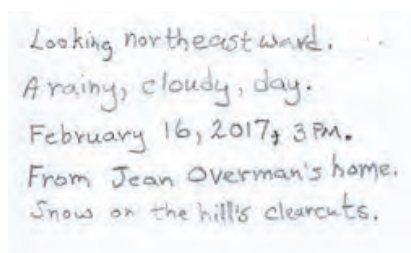 Looking northeastward.
A rainy, cloudy, day.
February 16, 2017, 3 PM.
From Jean Overman's home.
Snow on the hill's clearcuts.